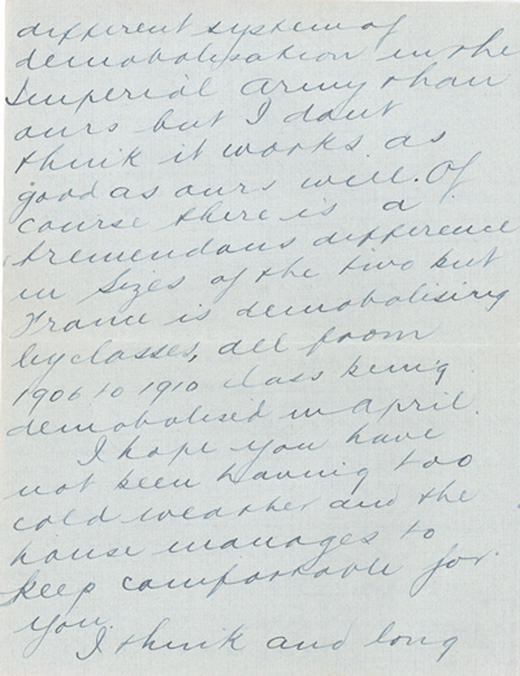 different system of
demobolisation in the
Imperial Army than
ours but I dont
think it works as
good as ours will. Of
course there is a
tremendous difference
in sizes of the two but
France is demobolising
by classes, all from
1906 to 1910 class being
demobolised in April.
I hope you have
not been having too
cold weather and the
house manages to
keep comfortable for
you.
I think and long